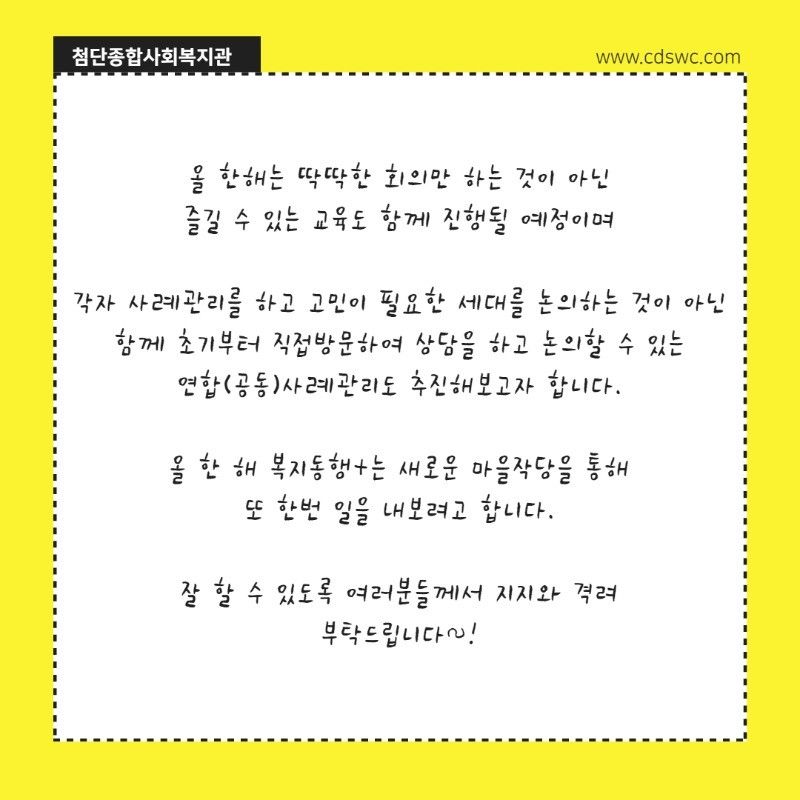 첨단종합사회복지관
www.cdswc.com
올 한해는 딱딱한 회의만 하는 것이 아닌
즐길 수 있는 교육도 함께 진행될 예정이며
각자 사례관리를 하고 고민이 필요한 세대를 논의하는 것이 아닌
함께 초기부터 직접방문하여 상담을 하고 논의할 수 있는
연합(공동)사례관리도 추진해보고자 합니다.
올 한 해 복지동행+는 새로운 마을작당을 통해
또 한번 일을 내보려고 합니다.
잘 할 수 있도록 여러분들께서 지지와 격려
부탁드립니다~!